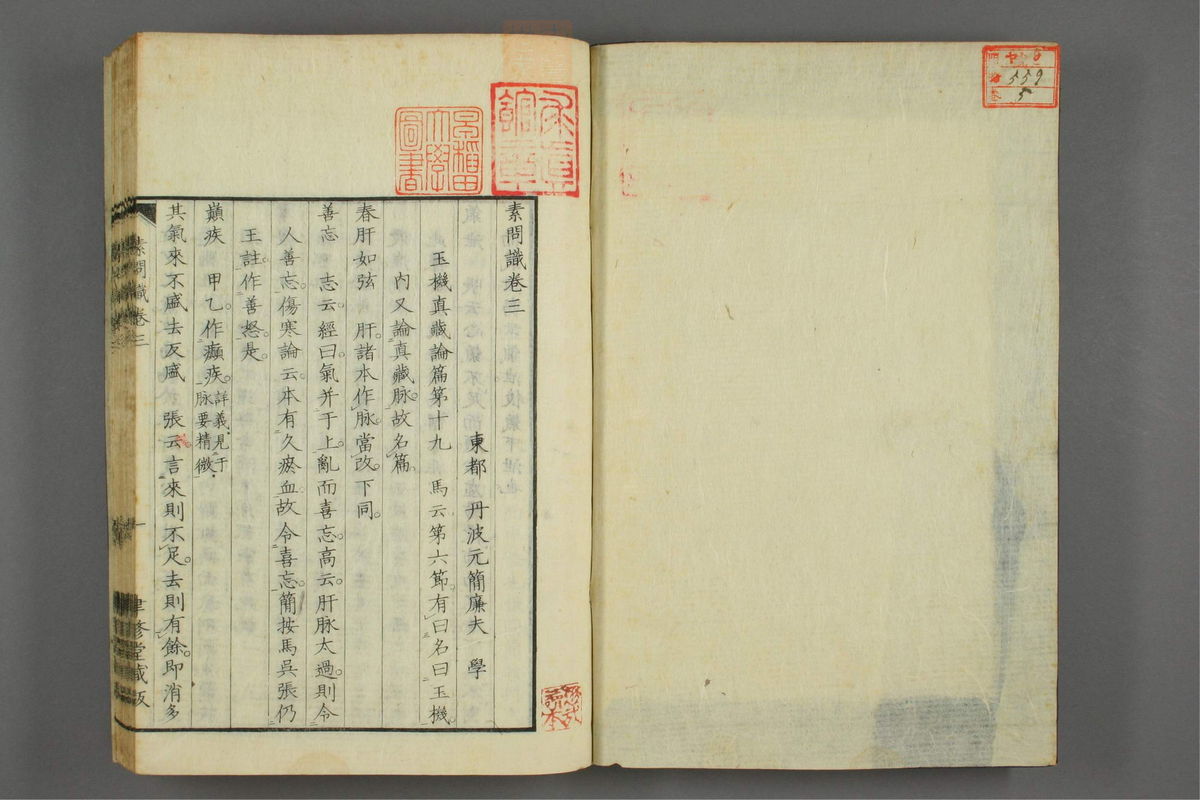 素問識卷三
東都 丹波元簡廉夫 學
玉機真藏論篇第十九 馬云第六節有曰名曰玉機
內又論真藏脉故名篇
春肝如弦 肝諸本作脉當改下同
善忘 志云經曰氣并于上亂而喜忘高云肝脉太過則令
人善忘傷寒論云本有久瘀血故令喜忘簡按馬吳張仍
王註作善怒是
巔疾 甲乙作癲疾詳義見于
脉要精微
其氣來不盛去反盛 張云言來則不足去則有餘即消多
素問識卷三
一
聿修堂藏板
圖書
559
5